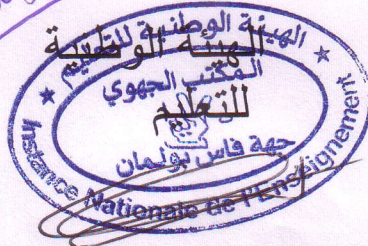 الهيئة الوطنية للتعليم
الهيئة الوطنية
المكتب الجهوي
للتعليم
جهة فاس بولمان
Instance Nationale de l'Enseignement